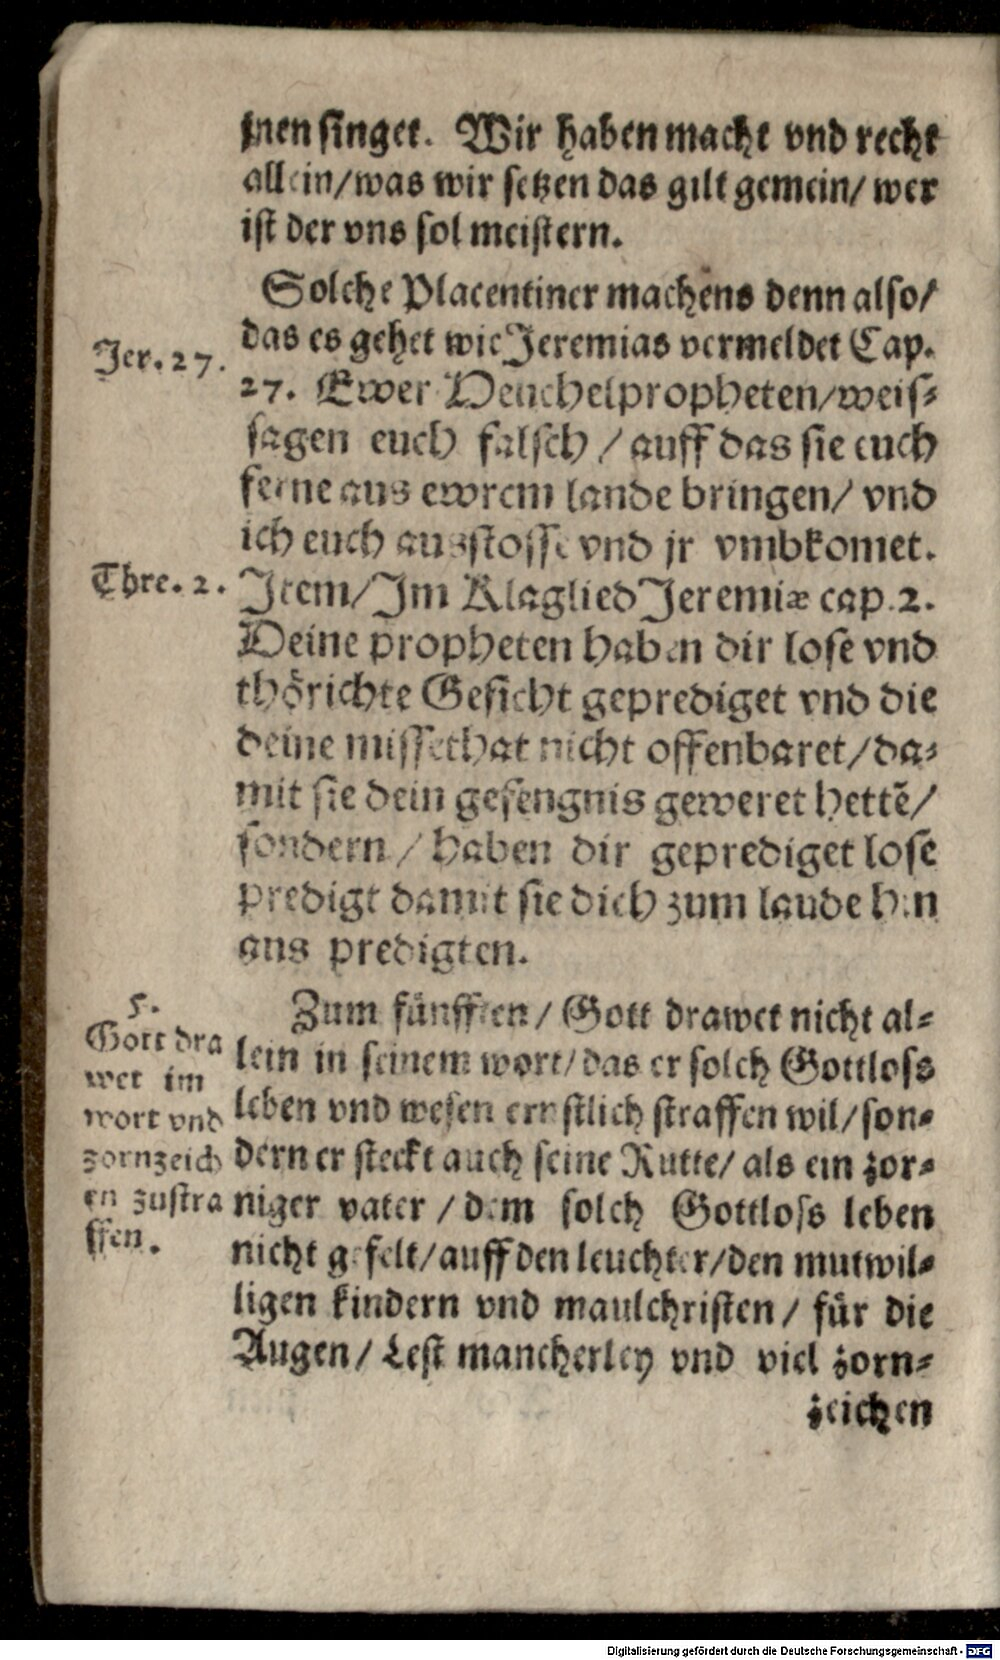 jnen singet. Wir haben macht vnd recht
allein/was wir setzen das gilt gemein/ wer
ist der vns sol meistern.
Solche Placentiner machens denn also/
das es gehet wie Jeremias vermeldet Cap.
Jer. 27.
27. Ewer Heuchelpropheten/weis⸗
sagen euch falsch / auff das sie euch
ferne aus ewrem lande bringen/ vnd
ich euch ausstosse vnd jr vmbkomet.
Thre. 2.
Item/Im Klaglied Jeremiæ cap.2.
Deine propheten haben dir lose vnd
thörichte Gesicht geprediget vnd die
deine missethat nicht offenbaret/da⸗
mit sie dein gefengnis geweret hettẽ/
sondern / haben dir geprediget lose
predigt damit sie dich zum laude hin
aus predigten.
5.
Gott dra
wet im
wort vnd
zornzeich
en zustra
ffen.
Zum fünfften/ Gott drawet nicht al⸗
lein in seinem wort/das er solch Gottloss
leben vnd wesen ernstlich straffen wil/son⸗
dern er steckt auch seine Rutte/ als ein zor⸗
niger vater / dem solch Gottloss leben
nicht gefelt/auff den leuchter/den mutwil⸗
ligen kindern vnd maulchristen/ für die
Augen/ Lest mancherley vnd viel zorn⸗
zeichen
Digitalisierung gefördert durch die Deutsche Forschungsgemeinschaft - DFG